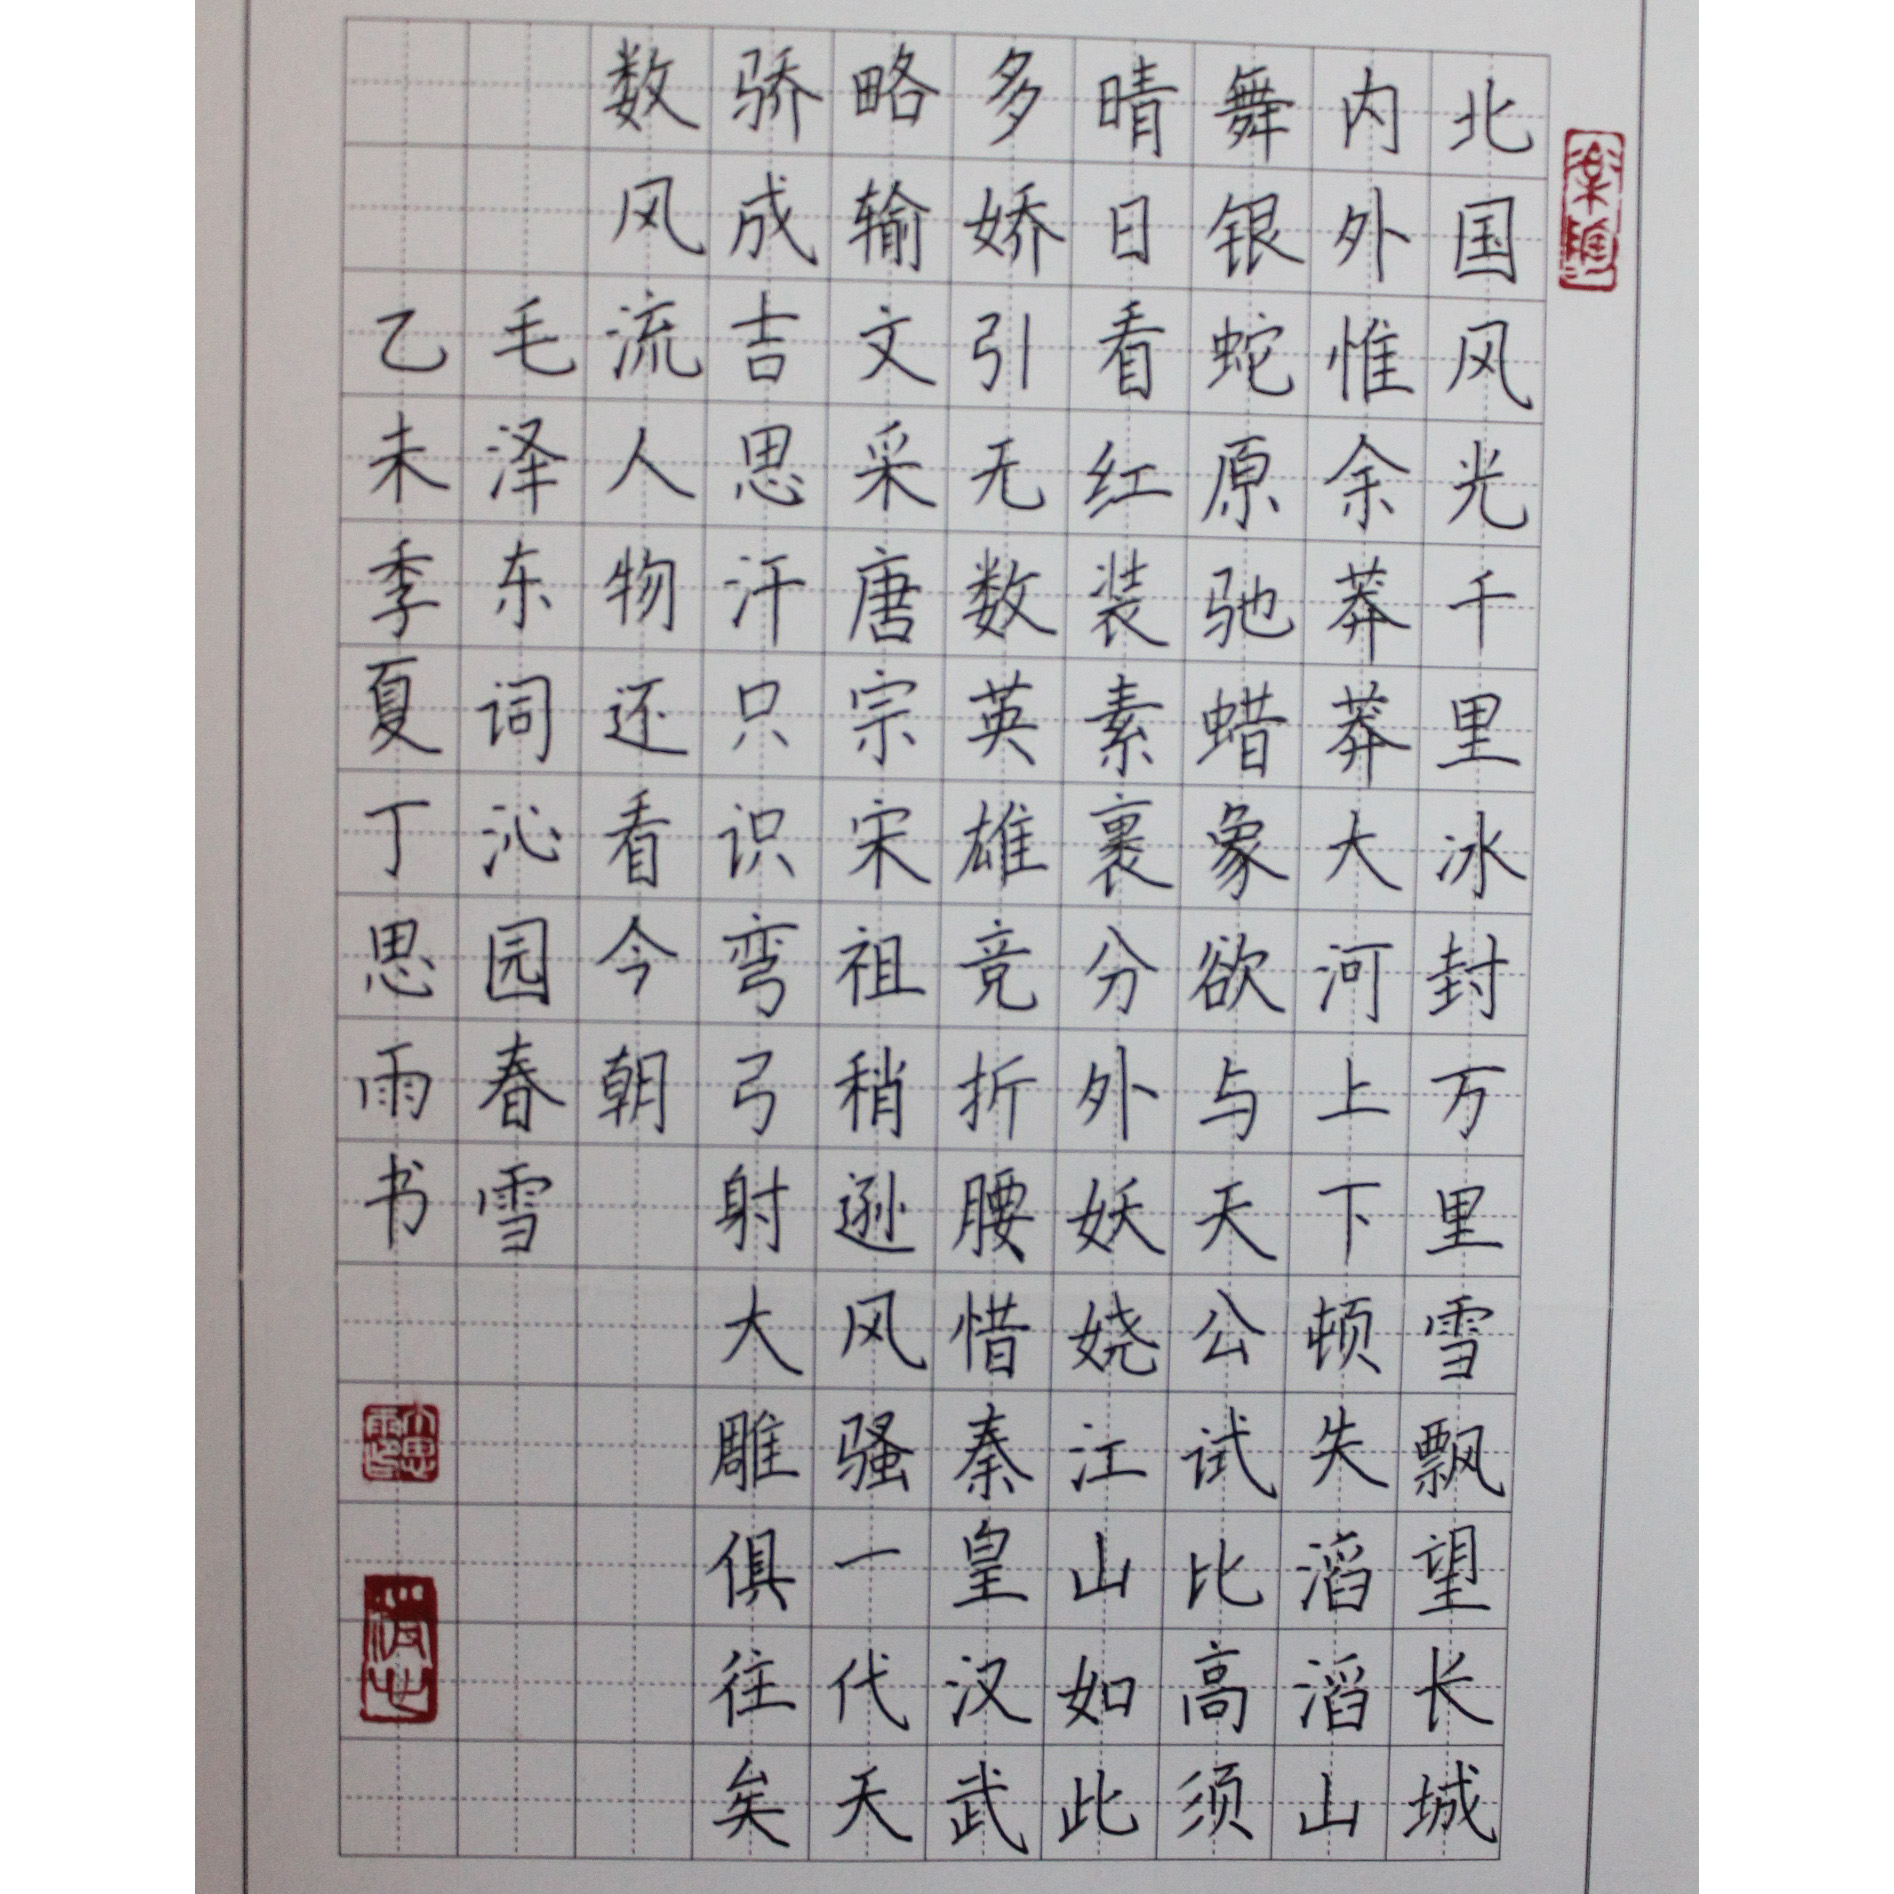 北国风光千里冰封万里雪飘望长城
内外惟余莽莽大河上下顿失滔滔山
舞银蛇原驰蜡象欲与天公试比高须
晴日看红装素裹分外妖娆江山如此
多娇引无数英雄竞折腰惜秦皇汉武
略输文采唐宗宋祖稍逊风骚一代天
骄成吉思汗只识弯弓射大雕俱往矣
数风流人物还看今朝
毛泽东词沁园春雪
乙未季夏丁思雨书